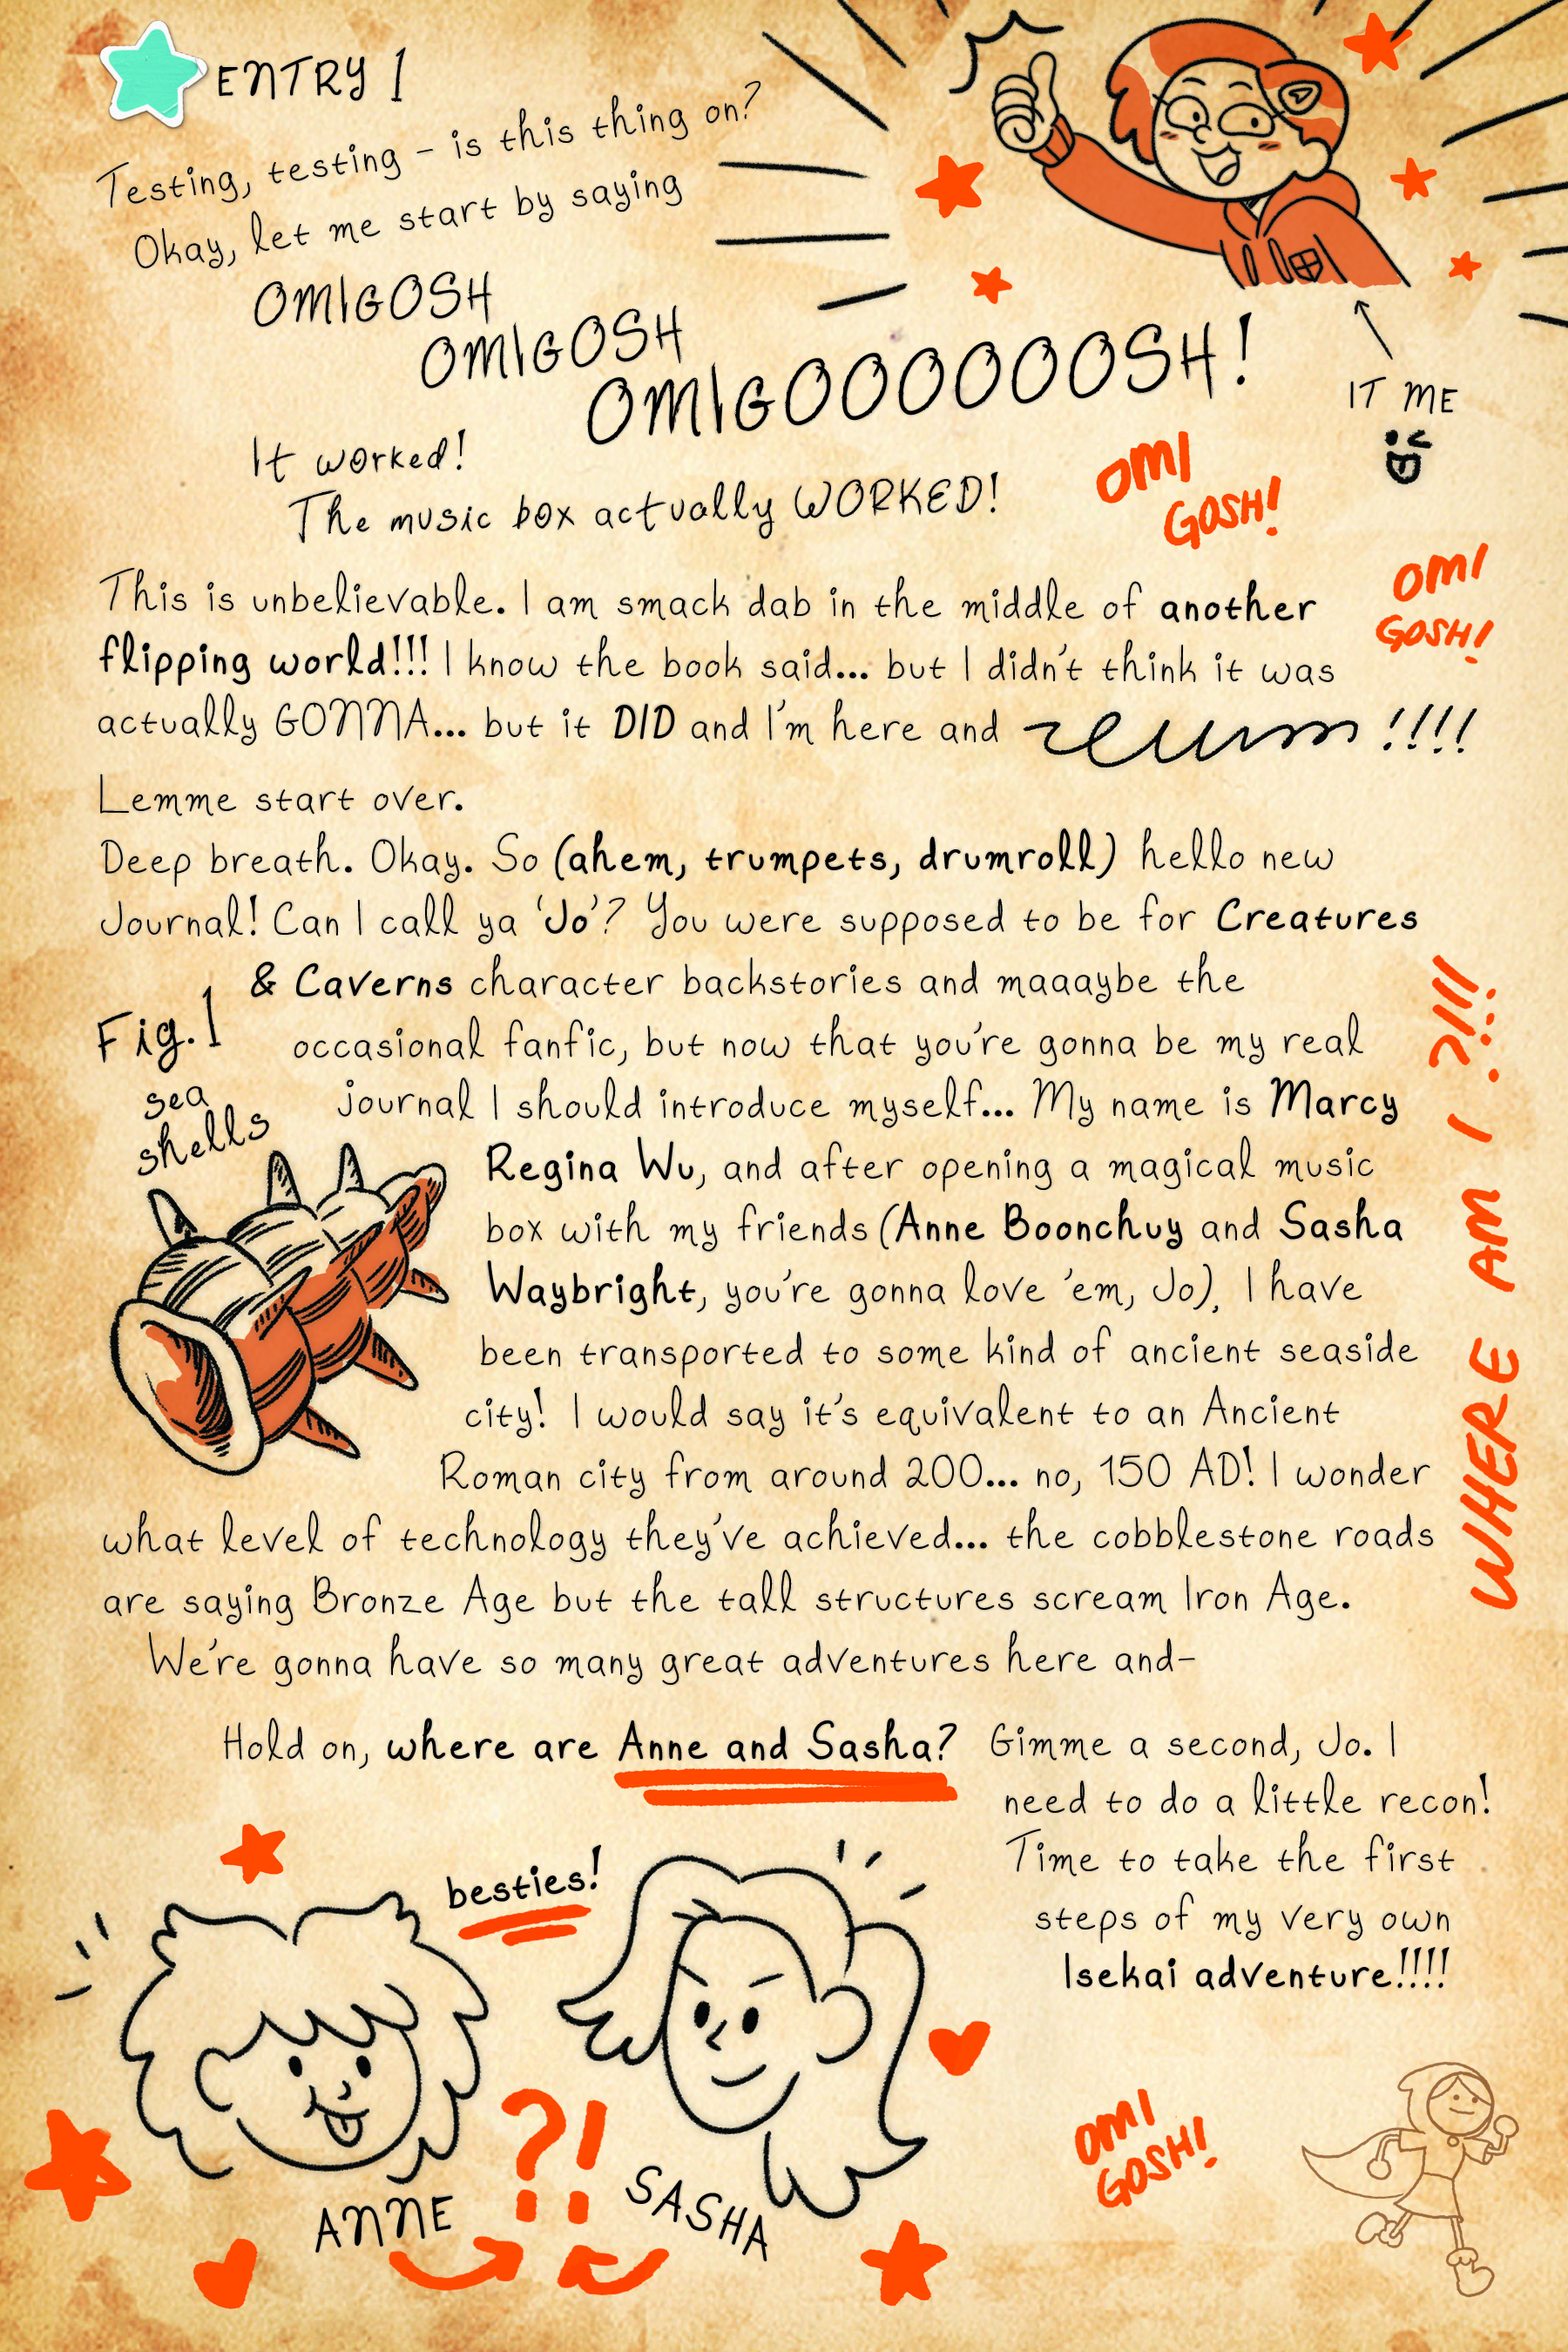 ENTRY 1
Testing, testing - is this thing on?
Okay, let me start by saying
OMIGOSH
OMIGOSH
OMIGOOOOOOOSH!
IT ME
It worked!
The music box actually WORKED!
OMI
GOSH!
OMI
GOSH!
This is unbelievable. I am smack dab in the middle of another
flipping world!!! I know the book said... but I didn't think it was
actually GONNA... but it DID and I'm here and !!!!
Lemme start over.
Deep breath. Okay. So (ahem, trumpets, drumroll) hello new
Journal! Can I call ya 'Jo'? You were supposed to be for Creatures
& Caverns character backstories and maaaybe the
occasional fanfic, but now that you're gonna be my real
journal I should introduce myself... My name is Marcy
Regina Wu, and after opening a magical music
box with my friends (Anne Boonchuy and Sasha
Waybright, you're gonna love 'em, Jo), I have
been transported to some kind of ancient seaside
city! I would say it's equivalent to an Ancient
Roman city from around 200... no, 150 AD! I wonder
what level of technology they've achieved... the cobblestone roads
are saying Bronze Age but the tall structures scream Iron Age.
We're gonna have so many great adventures here and-
Fig. 1
sea
shells
WHERE AM I ?!!!
Hold on, where are Anne and Sasha? Gimme a second, Jo. I
need to do a little recon!
Time to take the first
steps of my very own
Isekai adventure!!!!
besties!
?!
ANNE
SASHA
OMI
GOSH!